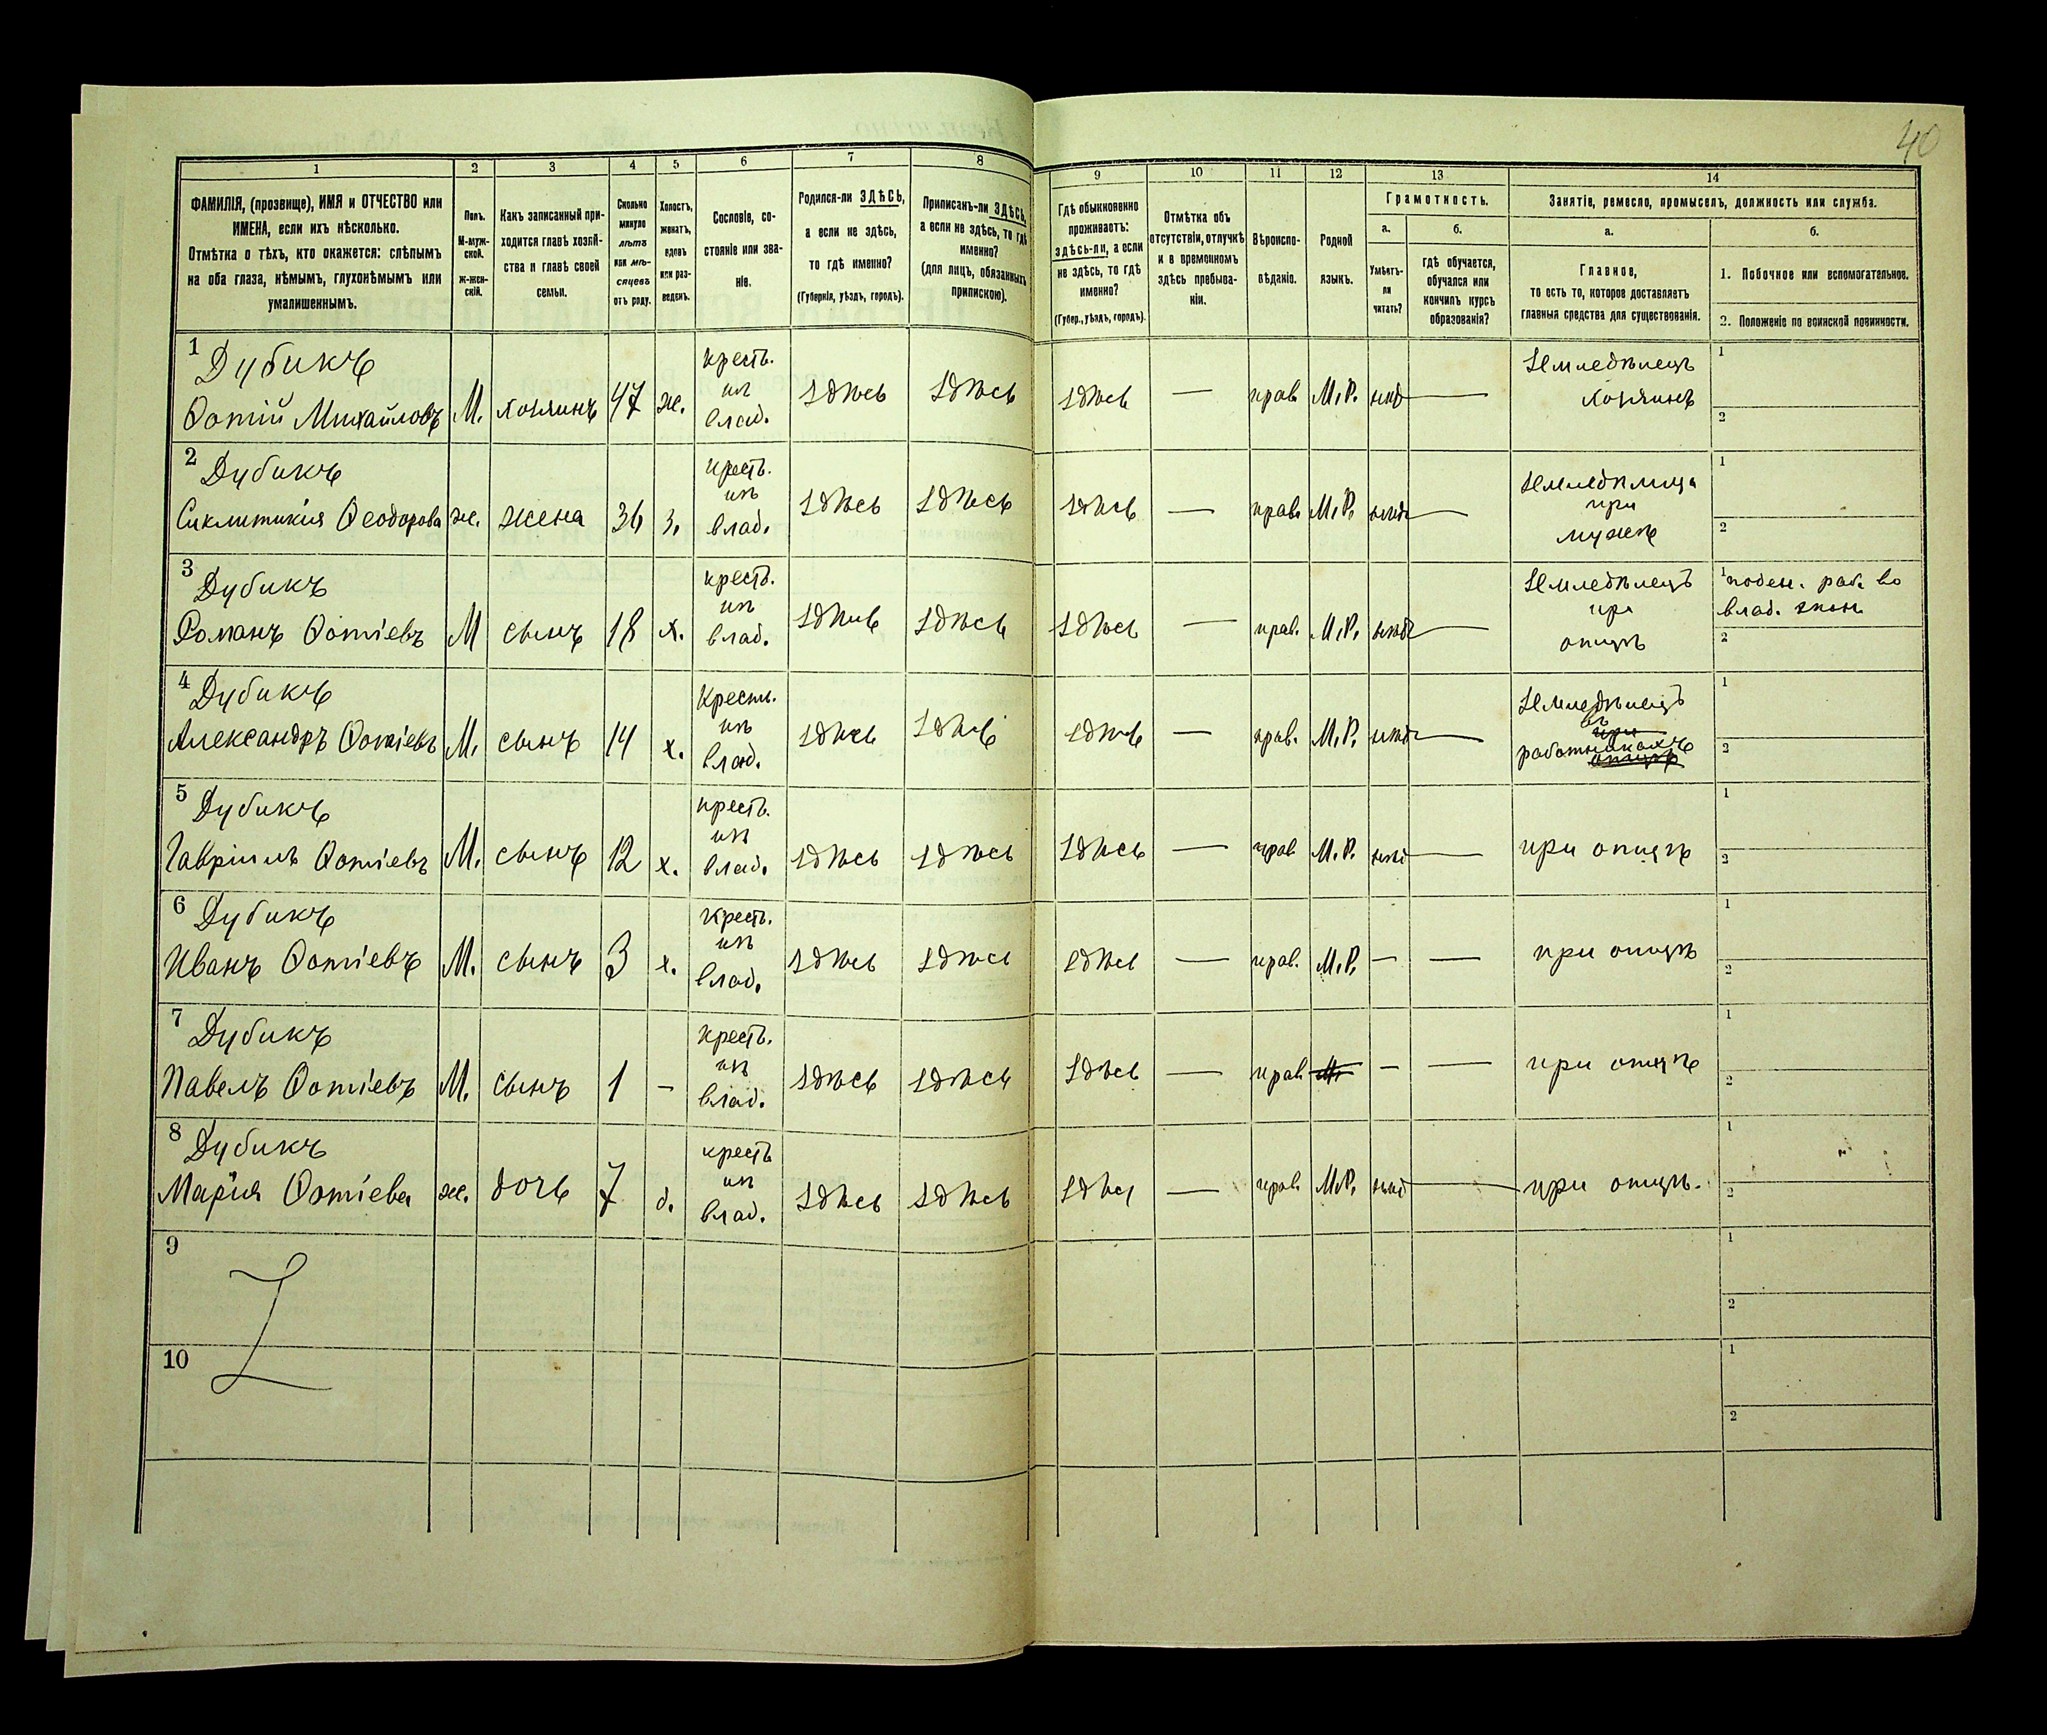 40
1 2 3 4 5 6 7 8 9 10 11 12 13 14
ФАМИЛІЯ, (прозвище), ИМЯ и ОТЧЕСТВО или
ИМЕНА, если ихъ нѣсколько.
Отмѣтка о тѣхъ, кто окажется: слѣпымъ
на оба глаза, нѣмымъ, глухонѣмымъ или
умалишеннымъ.
Полъ.
М-муж-
ской.
ж-жен-
скій.
Какъ записанный при-
ходится главѣ хозяй-
ства и главѣ своей
семьи.
Сколько
минуло
лѣтъ
или мѣ-
сяцевъ
отъ роду.
Холостъ,
женатъ,
вдовъ
или раз-
веденъ.
Сословіе, со-
стояніе или зва-
ніе.
Родился-ли ЗДѢСЬ,
а если не здѣсь,
то гдѣ именно?
(Губернія, уѣздъ, городъ).
Приписанъ-ли ЗДѢСЬ,
а если не здѣсь, то гдѣ
именно?
(для лицъ, обязанныхъ
припискою).
Гдѣ обыкновенно
проживаетъ:
здѣсь-ли, а если
не здѣсь, то гдѣ
именно?
(Губер., уѣздъ, городъ).
Отмѣтка объ
отсутствіи, отлучкѣ
и о временномъ
здѣсь пребыва-
ніи.
Вѣроиспо-
вѣданіе.
Родной
языкъ.
Грамотность.
а.
Умѣетъ-
ли
читать?
б.
гдѣ обучается,
обучался или
кончилъ курсъ
образованія?
Занятіе, ремесло, промыселъ, должность или служба.
а.
Главное,
то есть то, которое доставляетъ
главныя средства для существованія.
б.
1. Побочное или вспомогательное.
2. Положеніе по воинской повинности.
1 Дубикъ
Ѳотій Михайловъ М. хозяинъ 47 ж.
кресть.
изъ
влад.
здѣсь здѣсь здѣсь — прав. М.Р. нѣтъ —
Земледѣлецъ
хозяинъ
1
2
2 Дубикъ
Синклитикія Ѳеодорова ж. жена 36 з.
кресть.
изъ
влад.
здѣсь здѣсь здѣсь — прав. М.Р. нѣтъ —
Земледѣлица
при
мужѣ
1
2
3 Дубикъ
Романъ Ѳотіевъ М сынъ 18 х.
кресть.
изъ
влад.
здѣсь здѣсь здѣсь — прав. М.Р. нѣтъ —
Земледѣлецъ
при
отцѣ
1 поден. раб. во
влад. экон.
2
4 Дубикъ
Александръ Ѳотіевъ М. сынъ 14 х.
Кресть.
изъ
влад.
здѣсь здѣсь здѣсь — прав. М.Р. нѣтъ —
Земледѣлецъ
въ
при
работникахъ
отцѣ
1
2
5 Дубикъ
Гавріилъ Ѳотіевъ М. сынъ 12 х.
кресть.
изъ
влад.
здѣсь здѣсь здѣсь — прав М.Р. нѣтъ — при отцѣ
1
2
6 Дубикъ
Иванъ Ѳотіевъ М. сынъ 3 х.
кресть.
изъ
влад.
здѣсь здѣсь здѣсь — прав. М.Р. — — при отцѣ
1
2
7 Дубикъ
Павелъ Ѳотіевъ М. сынъ 1 —
кресть.
изъ
влад.
здѣсь здѣсь здѣсь — прав М. — — при отцѣ
1
2
8 Дубикъ
Марія Ѳотіева ж. дочь 7 д.
кресть
изъ
влад.
здѣсь здѣсь здѣсь — прав. М.Р. нѣтъ — при отцѣ.
1
2
9
1
2
10
1
2